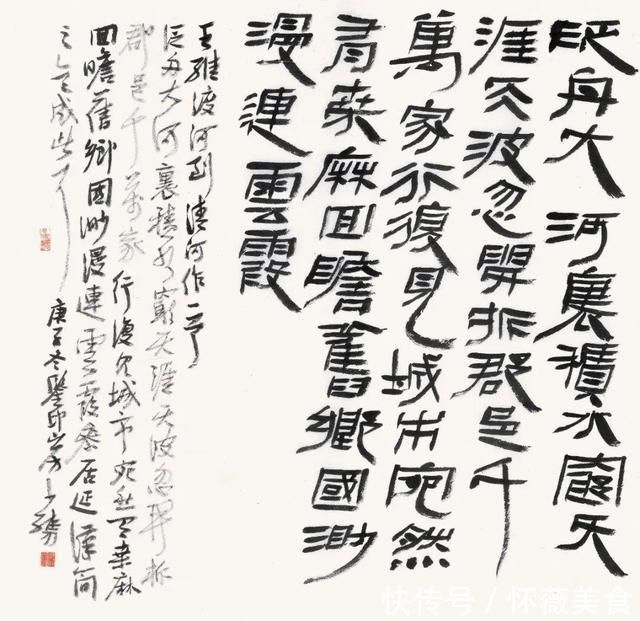 泛舟大河裏積水窮天
涯天波忽開拆郡邑千
萬家行復見城市宛然
有桑麻回瞻舊鄉國渺
漫連雲霞
王維渡河到清河作一首
泛舟大河裏積水窮天涯天波忽開拆
郡邑千萬家行復見城市宛然有桑麻
回瞻舊鄉國渺漫連雲霞參居延漢簡
之意成此
庚子冬鑒印山房
快传号 / 怀薇美食